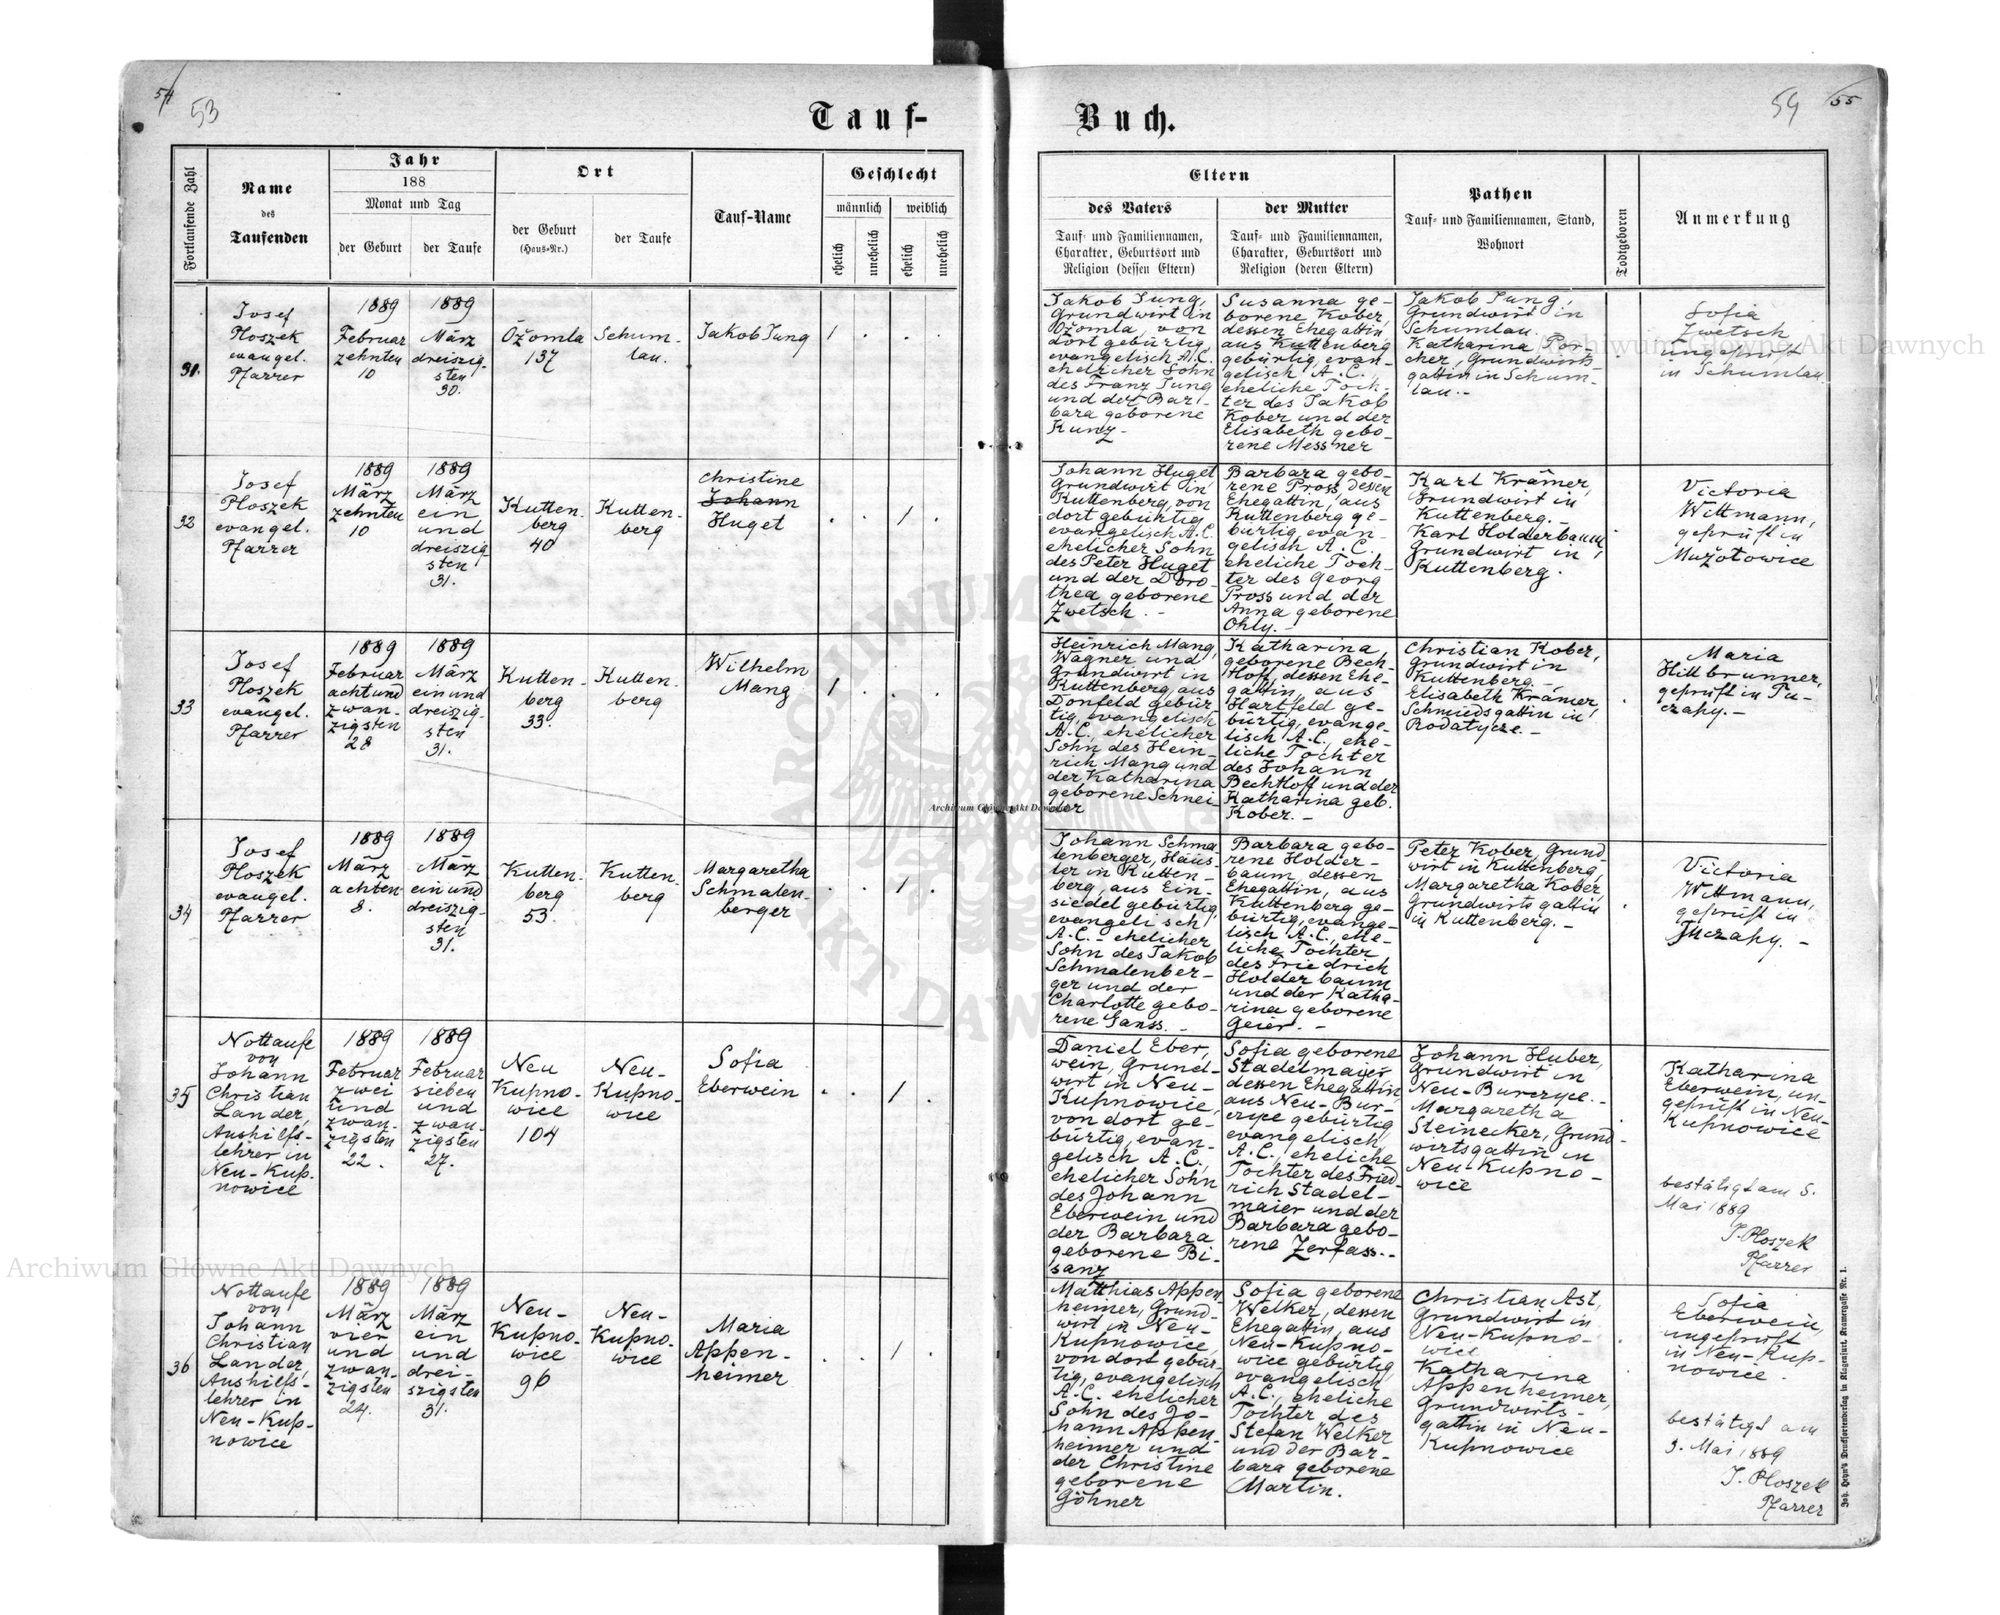 54
53
Tauf-
Buch.
54
55
Fortlaufende Zahl
Name
des
Taufenden
Jahr
188
Monat und Tag
der Geburt
der Taufe
Ort
der Geburt
(Haus-Nr.)
der Taufe
Tauf-Name
Geschlecht
männlich
weiblich
ehelich
unehelich
ehelich
unehelich
Eltern
des Vaters
Tauf- und Familiennamen,
Charakter, Geburtsort und
Religion (dessen Eltern)
der Mutter
Tauf- und Familiennamen,
Charakter, Geburtsort und
Religion (deren Eltern)
Pathen
Tauf- und Familiennamen, Stand,
Wohnort
Todtgeboren
Anmerkung
31.
Josef
Ploszek
evangel.
Pfarrer
1889
Februar
zehnten
10
1889
März
dreiszig-
sten
30.
Ožomla
137
Schum-
lau.
Jakob Jung
1
Jakob Jung,
Grundwirt in
Ožomla, von
dort gebürtig,
evangelisch A.C.
ehelicher Sohn
des Franz Jung
und der Bar-
bara geborene
Kunz-
Susanna ge-
borene Kober,
dessen Ehegattin
aus Kuttenberg
gebürtig, evan-
gelisch A.C.,
eheliche Toch-
ter des Jakob
Kober und der
Elisabeth gebo-
rene Messner
Jakob Jung,
Grundwirt in
Schumlau.
Katharina Por-
cher, Grundwirts-
gattin in Schum-
lau.-
Sofia
Zwetsch
ungeprüft
in Schumlau
32
Josef
Ploszek
evangel.
Pfarrer
1889
März
zehnten
10
1889
März
ein
und
dreiszig-
sten
31.
Kutten-
berg
40
Kutten-
berg
Christine
Johann
Huget
1
Johann Huget,
Grundwirt in
Kuttenberg, von
dort gebürtig,
evangelisch A.C.
ehelicher Sohn
des Peter Huget
und der Doro-
thea geborene
Zwetsch. -
Barbara gebo-
rene Pross, dessen
Ehegattin, aus
Kuttenberg ge-
bürtig, evan-
gelisch A.C.
eheliche Toch-
ter des Georg
Pross und der
Anna geborene
Ohly. -
Karl Krämer,
Grundwirt in
Kuttenberg.-
Karl Holderbaum,
Grundwirt in
Kuttenberg.
Victoria
Wittmann,
geprüft in
Mužotowice
33
Josef
Ploszek
evangel.
Pfarrer
1889
Februar
acht und
zwan-
zigsten
28
1889
März
ein und
dreiszig-
sten
31.
Kutten-
berg
33.
Kutten-
berg
Wilhelm
Mang
1
Heinrich Mang,
Wagner und
Grundwirt in
Kuttenberg, aus
Dornfeld gebür-
tig, evangelisch
A.C., ehelicher
Sohn des Hein-
rich Mang und
der Katharina
geborene Schnei-
der
Katharina,
geborene Bech-
tloff, dessen Ehe-
gattin, aus
Hartfeld ge-
bürtig, evange-
lisch A.C., ehe-
liche Tochter
des Johann
Bechtloff und der
Katharina geb.
Kober. -
Christian Kober,
Grundwirt in
Kuttenberg.-
Elisabeth Krämer,
Schmiedsgattin in
Rodatycze.-
Maria
Hittbrunner,
geprüft in Tu-
czapy.-
34
Josef
Ploszek
evangel.
Pfarrer
1889
März
achten
8.
1889
März
ein und
dreiszig-
sten
31.
Kutten-
berg
53.
Kutten-
berg
Margaretha
Schmalen-
berger
1
Johann Schma-
lenberger, Häus-
ler in Kutten-
berg, aus Ein-
siedel gebürtig,
evangelisch
A.C.- ehelicher
Sohn des Jakob
Schmalenber-
ger und der
Charlotte gebo-
rene Ganss. -
Barbara gebo-
rene Holder-
baum, dessen
Ehegattin, aus
Kuttenberg ge-
bürtig, evange-
lisch A.C., ehe-
liche Tochter
des Friedrich
Holderbaum
und der Katha-
rina geborene
Geier. -
Peter Kober, Grund-
wirt in Kuttenberg,
Margaretha Kober,
Grundwirtsgattin
in Kuttenberg.-
Victoria
Wittmann,
geprüft in
Tuczapy. -
35
Nottaufe
von
Johann
Christian
Lander,
Aushilfs-
lehrer in
Neu-Kup-
nowice
1889
Februar
zwei
und
zwan-
zigsten
22.
1889
Februar
sieben
und
zwan-
zigsten
27.
Neu
Kupno-
wice
104
Neu-
Kupno-
wice
Sofia
Eberwein
1
Daniel Eber-
wein, Grund-
wirt in Neu-
Kupnowice,
von dort ge-
bürtig, evan-
gelisch A.C.,
ehelicher Sohn
des Johann
Eberwein und
der Barbara
geborene Bi-
sanz
Sofia geborene
Stadelmaier
dessen Ehegattin
aus Neu-Bur-
czyce gebürtig
evangelisch
A.C., eheliche
Tochter des Fried-
rich Stadel-
maier und der
Barbara gebo-
rene Zerfass.-
Johann Huber,
Grundwirt in
Neu-Burczyce.-
Margaretha
Steinecker, Grund-
wirtsgattin in
Neu-Kupno-
wice
Katharina
Eberwein, un-
geprüft in Neu-
Kupnowice
bestätigt am 5.
Mai 1889
J. Ploszek
Pfarrer
36
Nottaufe
von
Johann
Christian
Lander,
Aushilfs-
lehrer in
Neu-Kup-
nowice
1889
März
vier
und
zwan-
zigsten
24.
1889
März
ein
und
drei-
szigsten
31.
Neu-
Kupno-
wice
96
Neu-
Kupno-
wice
Maria
Appen-
heimer
1
Matthias Appen-
heimer, Grund-
wirt in Neu-
Kupnowice,
von dort gebür-
tig, evangelisch
A.C. ehelicher
Sohn des Jo-
hann Appen-
heimer und
der Christine
geborene
Göhner
Sofia geborene
Welker, dessen
Ehegattin, aus
Neu-Kupno-
wice gebürtig
evangelisch
A.C., eheliche
Tochter des
Stefan Welker
und der Bar-
bara geborene
Martin.
Christian Ast,
Grundwirt in
Neu-Kupno-
wice
Katharina
Appenheimer,
Grundwirts-
gattin in Neu-
Kupnowice
Sofia
Eberwein,
ungeprüft
in Neu-Kup-
nowice.
bestätigt am
J. Ploszek
Pfarrer
Joh. Heyn's Drucksortenverlag in Klagenfurt, Kramergasse Nr. 1.
Archiwum Główne Akt Dawnych
Archiwum Główne Akt Dawnych
Archiwum Główne Akt Dawnych